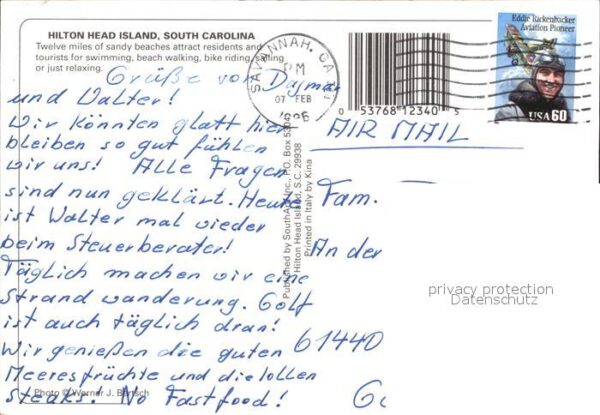 HILTON HEAD ISLAND, SOUTH CAROLINA
Twelve miles of sandy beaches attract residents and
tourists for swimming, beach walking, bike riding,
or just relaxing.
Grüße von Dagmar
und Walter!
Wir könnten glatt hier
bleiben so gut fühlen
wir uns! Alle Fragen
sind nun geklärt. Heute
ist Walter mal wieder
beim Steuerberater!
Täglich machen wir eine
Strandwanderung. Golf
ist auch täglich dran!
Wir genießen die guten
Meeresfrüchte und die tollen
Steaks. No Fastfood!
Photo © Werner J. Bertsch
Published by SouthArt, Inc., P.O. Box
Hilton Head Island, S.C. 29938
Printed in Italy by Kina
SAVANNAH, GA
PM
07 FEB
1996
0 53768 12340 5
Eddie Rickenbacker
Aviation Pioneer
USA 60
AIR MAIL
Fam.
An der
61440
privacy protection
Datenschutz